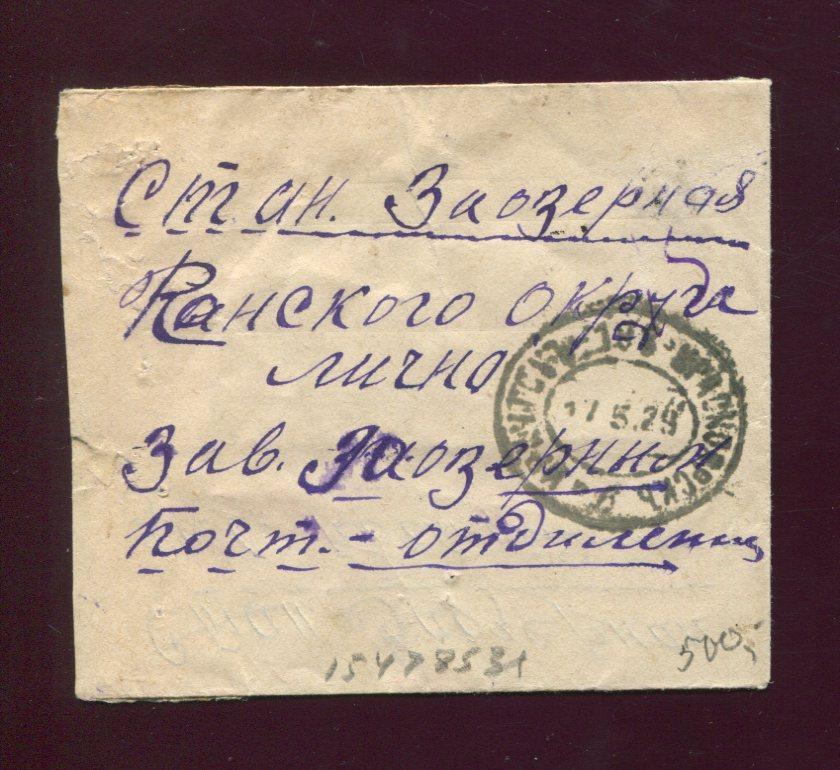 Стан. Заозерная
Канского округа
лично
Зав. Заозерным
почт. - отдиленец
17 5.29
15478531
500,-